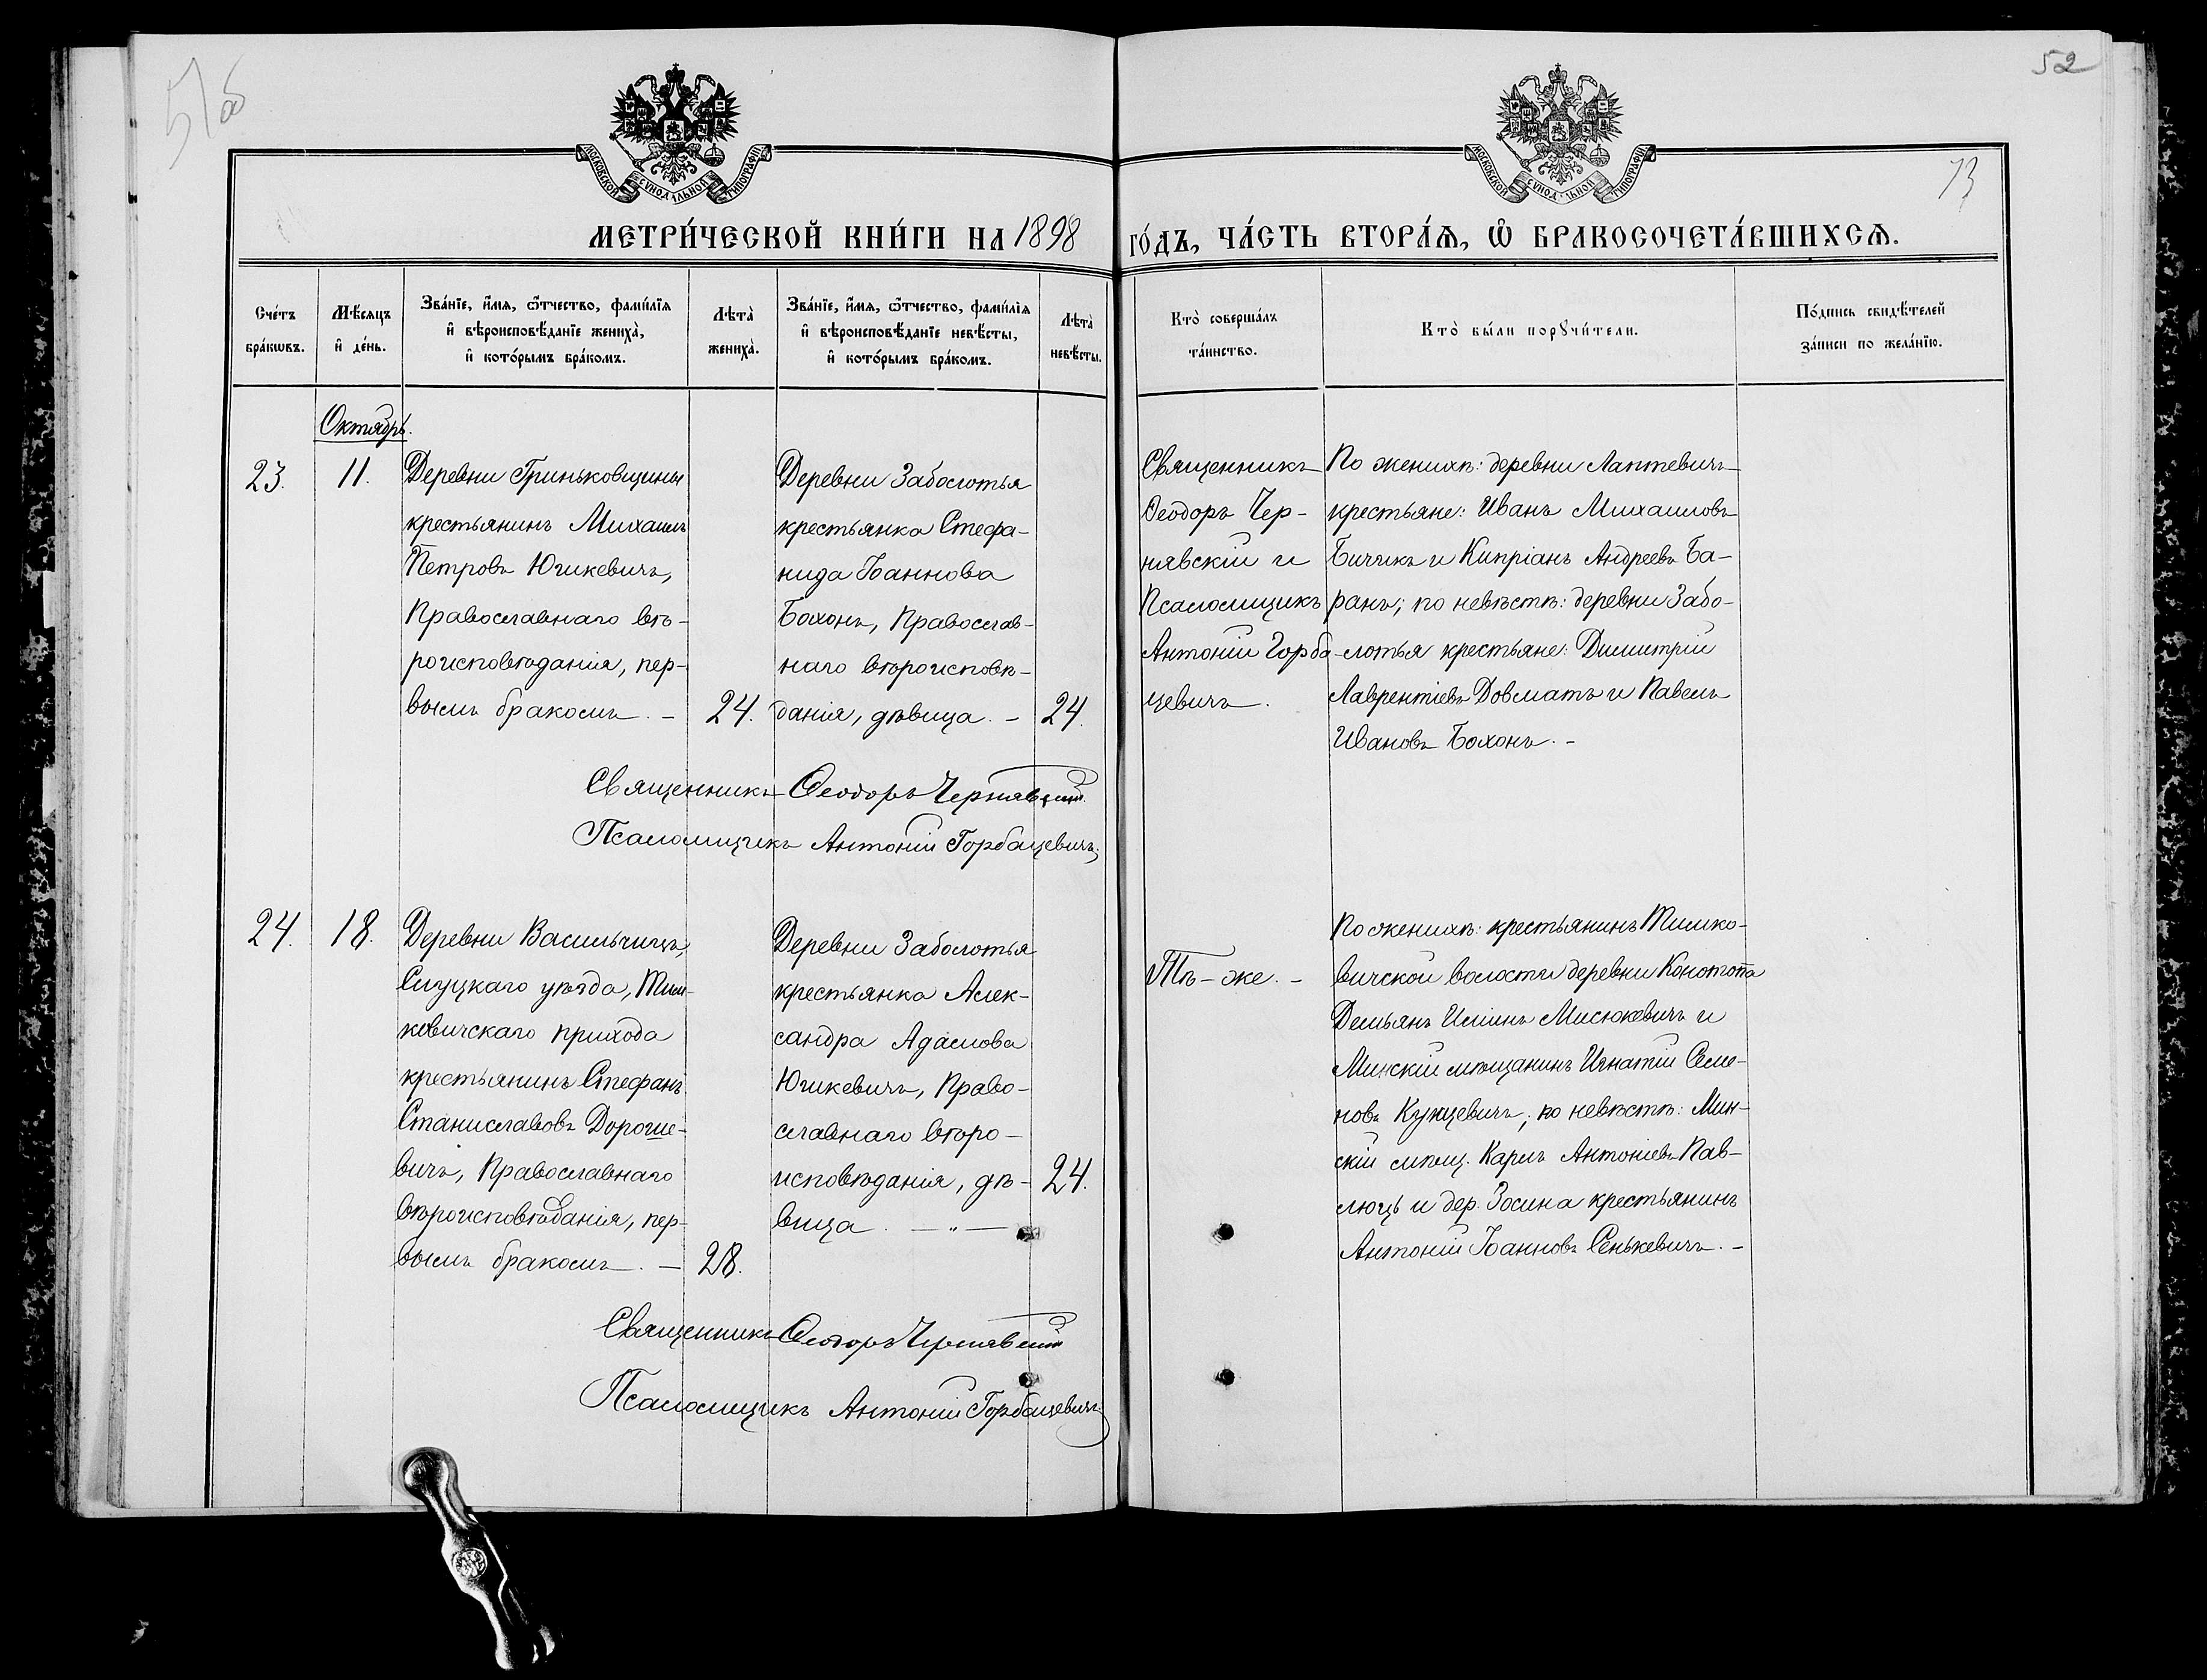 52
51об
73
МОСКОВСКОЙ СѴНОДАЛЬНОЙ ТИПОГРАФІИ
МОСКОВСКОЙ СѴНОДАЛЬНОЙ ТИПОГРАФІИ
МЕТРИ́ЧЕСКОЙ КНИ́ГИ НА 1898 ГО́ДЪ, ЧА́СТЬ ВТОРА́Ѧ, Ѽ БРАКОСОЧЕТА́ВШИХСѦ.
Сче́тъ
бра́кѡвъ.
Мѣ́сяцъ
и҆ де́нь.
Зва́нїе, и҆́мѧ, ѻ҆́тчество, фами́лїѧ
и҆ вѣроисповѣ́данїе жениха̀,
и҆ кото́рымъ бра́комъ.
Лѣта̀
жениха̀.
Зва́нїе, и҆́мѧ, ѻ҆́тчество, фами́лїѧ
и҆ вѣроисповѣ́данїе невѣ́сты,
и҆ кото́рымъ бра́комъ.
Лѣта̀
невѣ́сты.
Кто̀ соверша́лъ
та́инство.
Кто̀ бы́ли порꙋчи́тели.
По́дпись свидѣ́телей
за́писи по жела́нїю.
Октябрь.
23.
11.
Деревни Гриньковщины
крестьянинъ Михаилъ
Петровъ Юшкевичъ,
Православнаго вѣ-
роисповѣданія, пер-
вымъ бракомъ. –
24.
Деревни Заболотья
крестьянка Стефа-
нида Іоаннова
Бохонъ, Православ-
наго вѣроисповѣ-
данія, дѣвица. –
24.
Священникъ
Ѳеодоръ Чер-
нявскій и
Псаломщикъ
Антоній Горба-
цевичъ.
По женихѣ: деревни Лаптевичъ
крестьяне: Иванъ Михаиловъ
Бичикъ и Кипріанъ Андреевъ Ба-
ранъ; по невѣстѣ: деревни Забо-
лотья крестьяне: Димитрій
Лаврентіевъ Довматъ и Павелъ
Ивановъ Бохонъ. –
Священникъ Ѳеодоръ Чернявскій
Псаломщикъ Антоній Горбацевичъ
24.
18.
Деревни Васильчицъ,
Слуцкаго уѣзда, Тим-
ковичскаго прихода
крестьянинъ Стефанъ
Станиславовъ Дороше-
вичъ, Православнаго
вѣроисповѣданія, пер-
вымъ бракомъ. –
28.
Деревни Заболотья
крестьянка Алек-
сандра Адамова
Юшкевичъ, Право-
славнаго вѣро-
исповѣданія, дѣ-
вица. — „ —
24.
Тѣ-же. –
По женихѣ: крестьянинъ Тимко-
вичской волости деревни Конотопа
Демьянъ Ильинъ Мисюкевичъ и
Минскій мѣщанинъ Игнатій Семе-
новъ Кунцевичъ; по невѣстѣ: Мин-
скій мѣщ. Карлъ Антоніевъ Пав-
люць и дер. Зосина крестьянинъ
Антоній Іоанновъ Сенькевичъ. –
Священникъ Ѳеодоръ Чернявскій
Псаломщикъ Антоній Горбацевичъ